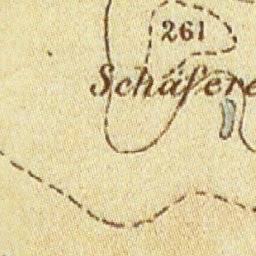 261
Schäfere